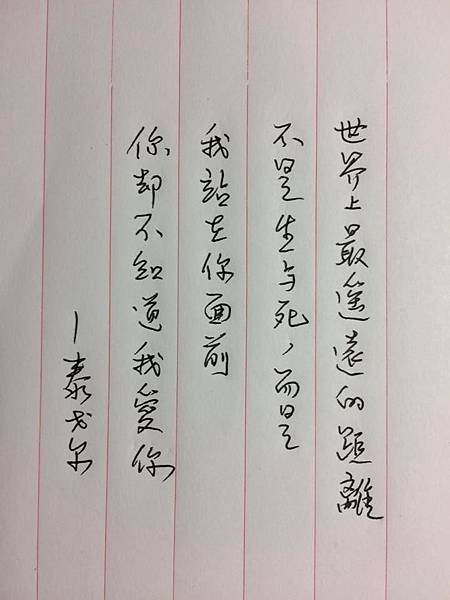 世界上最遥遠的距離
不是生与死，而是
我站在你面前
你却不知道我愛你
—泰戈尔